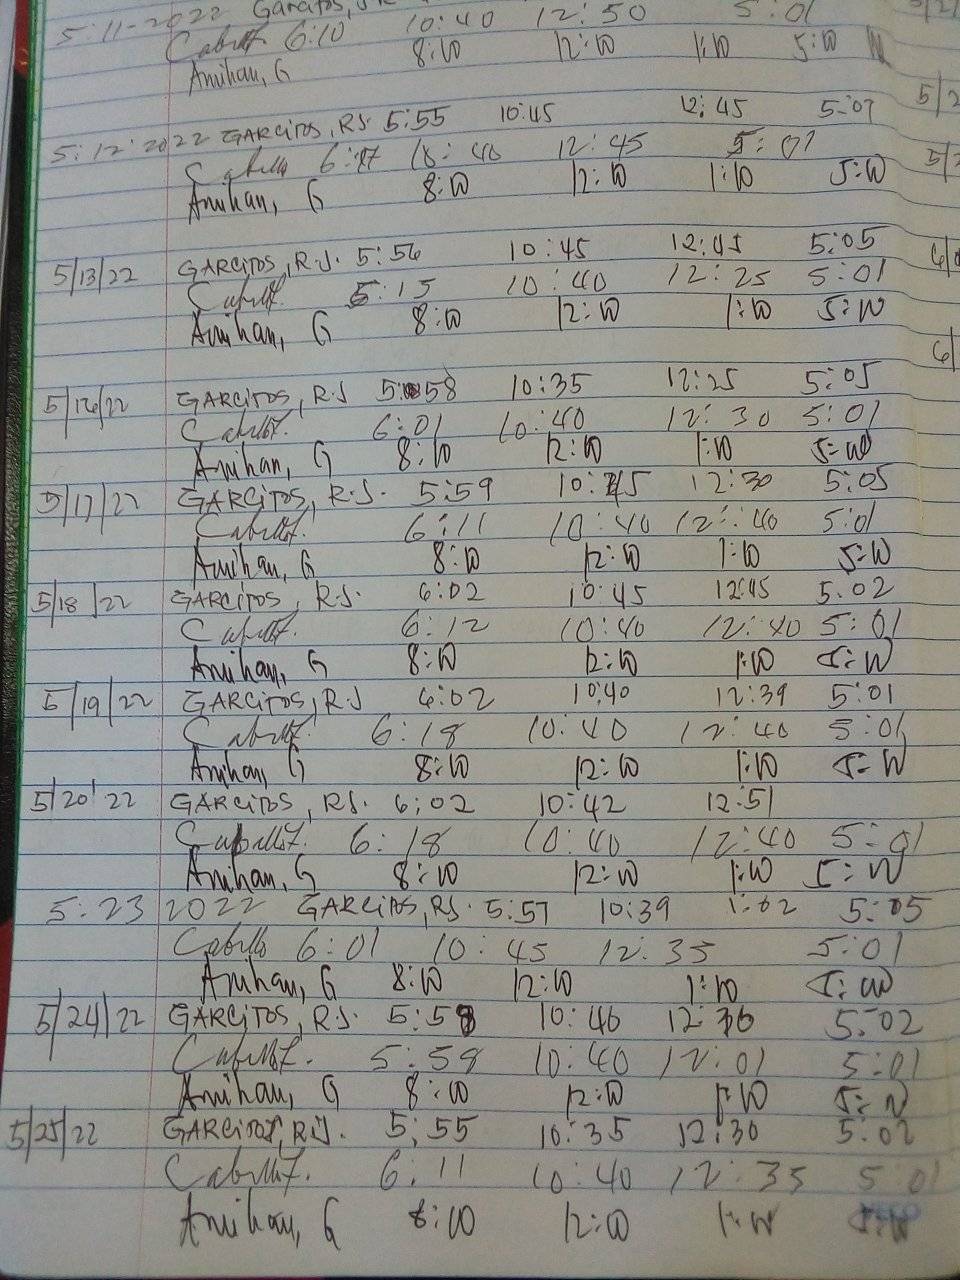 5-11-2022 Garcitos,
Cabillo 6:10 10:40 12:50 5:01
Anihan, G 8:00 12:00 1:00 5:00
5:12:2022 GARCITOS, R.J. 5:55 10:45 12:45 5:07
Cabillo 6:17 10:40 12:45 5:01
Anihan, G 8:00 12:00 1:00 5:00
5/13/22 GARCITOS, R.J. 5:56 10:45 12:45 5:05
Cabillo F. 6:15 10:40 12:25 5:01
Anihan, G 8:00 12:00 1:00 5:00
5/16/22 GARCITOS, R.J 5:58 10:35 12:25 5:05
Cabillo F. 6:01 10:40 12:30 5:01
Anihan, G 8:00 12:00 1:00 5:00
5/17/22 GARCITOS, R.J. 5:59 10:45 12:30 5:05
Cabillo F. 6:11 10:40 12:40 5:01
Anihan, G 8:00 12:00 1:00 5:00
5/18/22 GARCITOS, R.J. 6:02 10:45 12:45 5:02
Cabillo F. 6:12 10:40 12:40 5:01
Anihan, G 8:00 12:00 1:00 5:00
5/19/22 GARCITOS, R.J 6:02 10:40 12:39 5:01
Cabillo F. 6:18 10:40 12:40 5:01
Anihan, G 8:00 12:00 1:00 5:00
5/20/22 GARCITOS, R.J. 6:02 10:42 12:51
Cabillo F. 6:18 10:40 12:40 5:01
Anihan, G 8:00 12:00 1:00 5:00
5:23 2022 GARCITOS, R.J. 5:57 10:39 1:02 5:05
Cabillo 6:01 10:45 12:35 5:01
Anihan, G 8:00 12:00 1:00 5:00
5/24/22 GARCITOS, R.J. 5:58 10:46 12:30 5:02
Cabillo F. 5:58 10:40 12:01 5:01
Anihan, G 8:00 12:00 1:00 5:00
5/25/22 GARCITOS, R.J. 5:55 10:35 12:30 5:02
Cabillo F. 6:11 10:40 12:35 5:01
Anihan, G 8:00 12:00 1:00 5:00